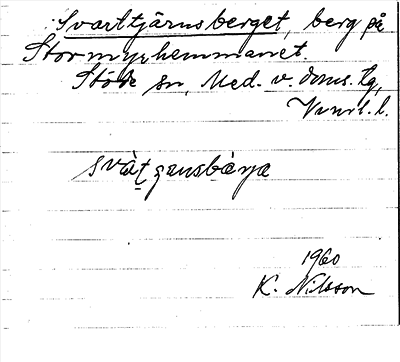 Svarttjärnsberget, berg på
Stormyrhemmanet.
Stöde sn, Med. v. doms. tg,
l.
svàt
1960
K. Nilsson